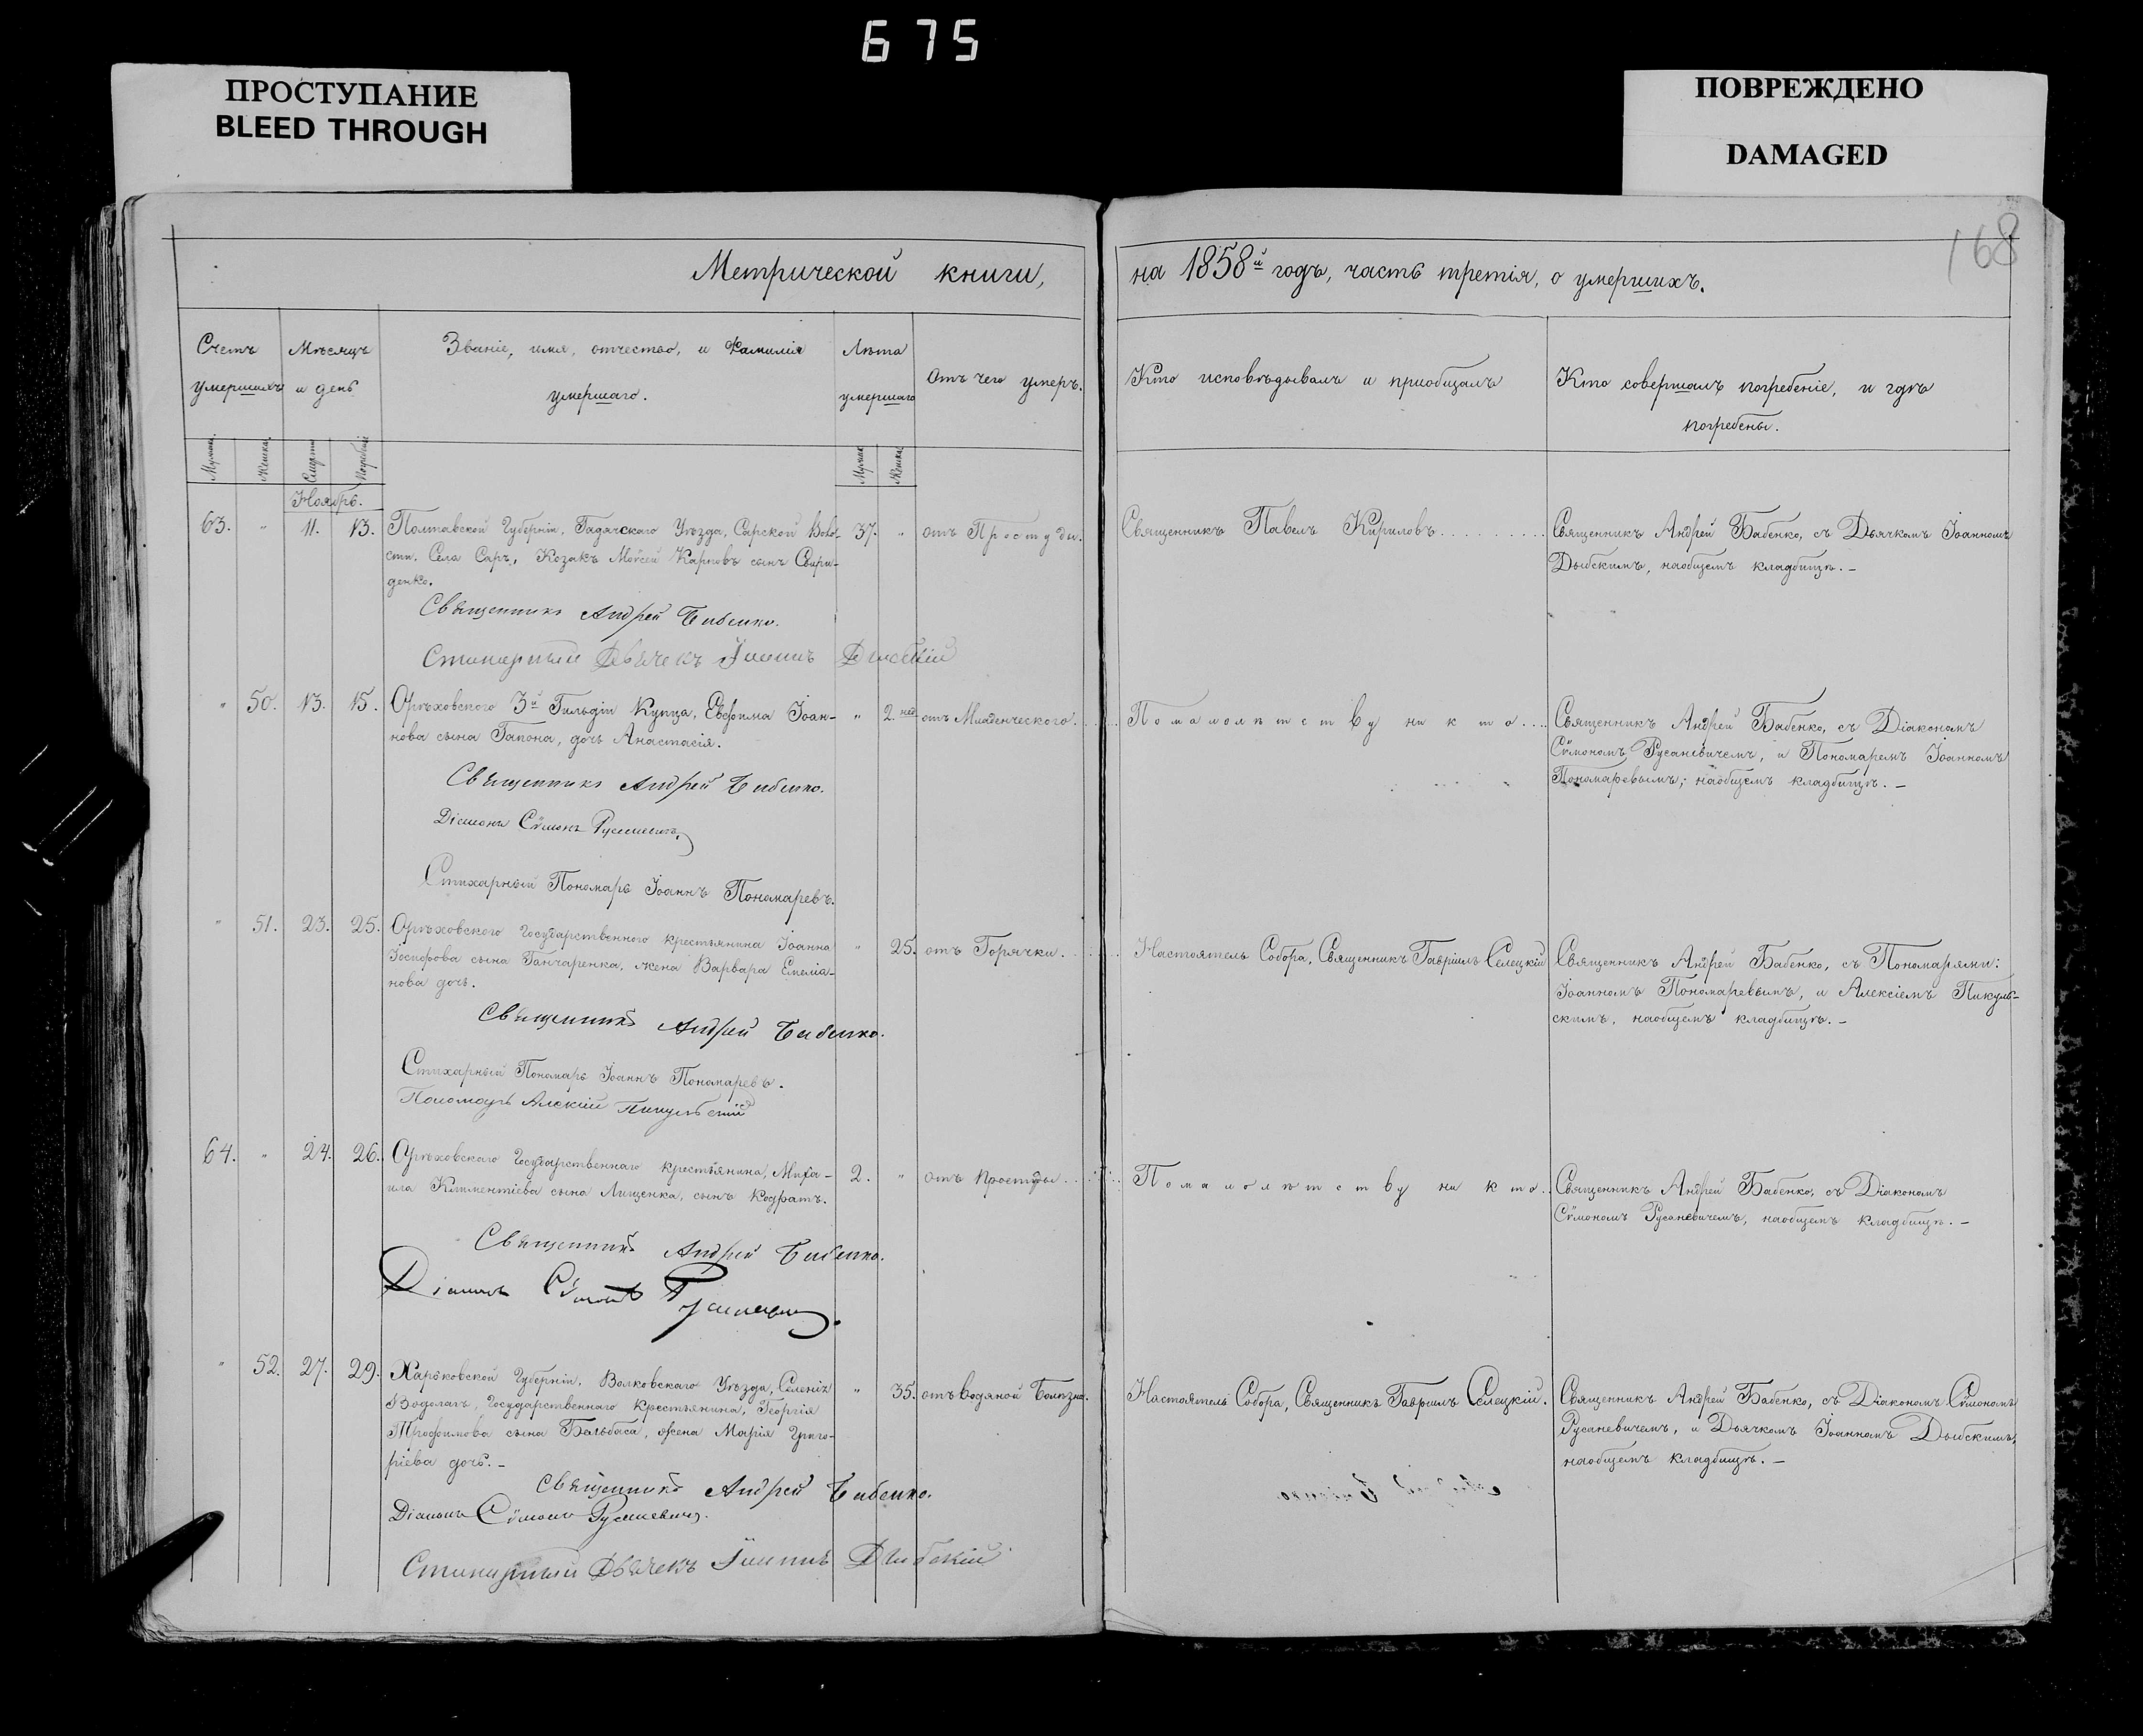 675
ПРОСТУПАНИЕ
BLEED THROUGH
ПОВРЕЖДЕНО
DAMAGED
168
Метрической книги,
на 1858й годъ, часть третія, о умершихъ.
Счетъ умершихъ
Мѣсяцъ и день
Званіе, имя, отчество, и Фамилія умершаго.
Лѣта умершаго
Отъ чего умеръ.
Кто исповѣдывалъ и приобщалъ
Кто совершалъ погребеніе, и гдѣ погребены.
Мужска. Женска. Смерти Погребенія Мужск. Женска.
Ноябрь.
63. " 11. 13. Полтавской Губерніи, Гадячскаго Уѣзда, Сарской Воло-
сти, Села Саръ, Козакъ Мойсей Карповъ сынъ Свири-
денко.
37. " отъ Простуды.
Священникъ Павелъ Кириловъ
Священникъ Андрей Бабенко, съ Дьячкомъ Іоанномъ
Дыбскимъ, наобщемъ кладбищѣ. –
Священникъ Андрей Бабенко.
Стихарный Дьячекъ Іоаннъ Дыбскій
" 50. 13. 15. Орѣховского 3й Гильдіи Купца, Евфима Іоан-
нова сына Гапона, дочь Анастасія.
" 2. нед. отъ Младенческого.
По малолѣтству ни кто
Священникъ Андрей Бабенко, съ Діакономъ
Сѵмономъ Русаневичемъ, и Пономаремъ Іоанномъ
Пономаревымъ; наобщемъ кладбищѣ. –
Священникъ Андрей Бабенко.
Діаконъ Сѵмонъ Русаневичъ.
Стихарный Пономарь Іоаннъ Пономаревъ.
" 51. 23. 25. Орѣховского Государственного крестьянина Іоанна
Іосифова сына Ганчаренка, жена Варвара Емеліа-
нова дочь.
" 25. отъ Горячки.
Настоятель Собора, Священникъ Гавріилъ Селецкій
Священникъ Андрей Бабенко, съ Пономарями:
Іоанномъ Пономаревымъ, и Алексіемъ Пикуль-
скимъ, наобщемъ кладбищѣ. –
Священникъ Андрей Бабенко.
Стихарный Пономарь Іоаннъ Пономаревъ.
Пономарь Алексій Пикульскій
64. " 24. 26. Орѣховскаго Государственнаго крестьянина, Михаи-
ила Климентіева сына Лищенка, сынъ Кодратъ.
2. " отъ Простуды
По малолѣтству ни кто
Священникъ Андрей Бабенко, съ Діакономъ
Сѵмономъ Русаневичемъ, наобщемъ кладбищѣ. –
Священникъ Андрей Бабенко.
Діаконъ Сѵмонъ Русаневичъ.
" 52. 27. 29. Харьковской Губерніи, Волковскаго Уѣзда, Селенія
Водолагъ, Государственнаго Крестьянина, Георгія
Трофимова сына Бальбаса, жена Марія Григо-
ріева дочь. –
" 35. отъ водяной болѣзни.
Настоятель Собора, Священникъ Гавріилъ Селецкій.
Священникъ Андрей Бабенко, съ Діакономъ Сѵмономъ
Русаневичемъ, и Дьячкомъ Іоанномъ Дыбскимъ,
наобщемъ кладбищѣ. –
Священникъ Андрей Бабенко.
Діаконъ Сѵмонъ Русаневичъ.
Стихарный Дьячекъ Іоаннъ Дыбскій